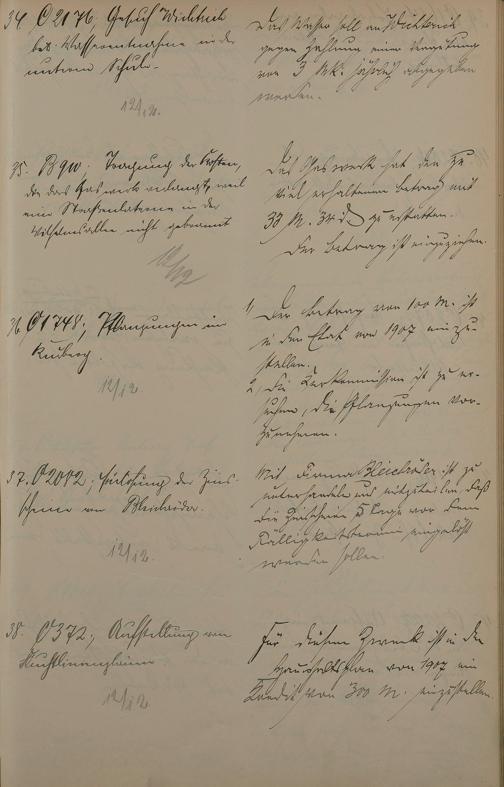 34. C 2176, Gesuch Wichtrich
betr. Wasserentnahme in der
unteren Schule.
12/12.
Das Wasser soll an Wichtrich
gegen Zahlung einer Vergütung
von 3 Mk. jährlich abgegeben
werden.
35. B 90. Tragung der Kosten,
die das Gaswerk verlangt, weil
eine Straßenlaterne in der
Wilhelmsallee nicht gebrannt
12/12
Das Gaswerk hat den zu
viel erhaltenen Betrag mit
33 M. 34 d zu erstatten.
Der Betrag ist einzuziehen.
36. C 1748, Pflanzungen im
12/12
1, Der Betrag von 100 M. ist
in den Etat von 1907 einzu-
stellen.
2, Die Kurkommission ist zu er-
suchen, die Pflanzungen vor-
zunehmen.
37. C 2012, Einlösung der Zins-
scheine von Bleichröder.
12/12.
Mit Firma Bleichröder ist zu
unterhandeln und mitzuteilen, daß
die Zinsscheine 5 Tage vor dem
Fälligkeitstermin eingelöst
werden sollen.
38. C 372, Aufstellung von
12/12
Für diesen Zweck ist in den
Haushaltsplan von 1907 ein
Kredit von 300 M. einzustellen.